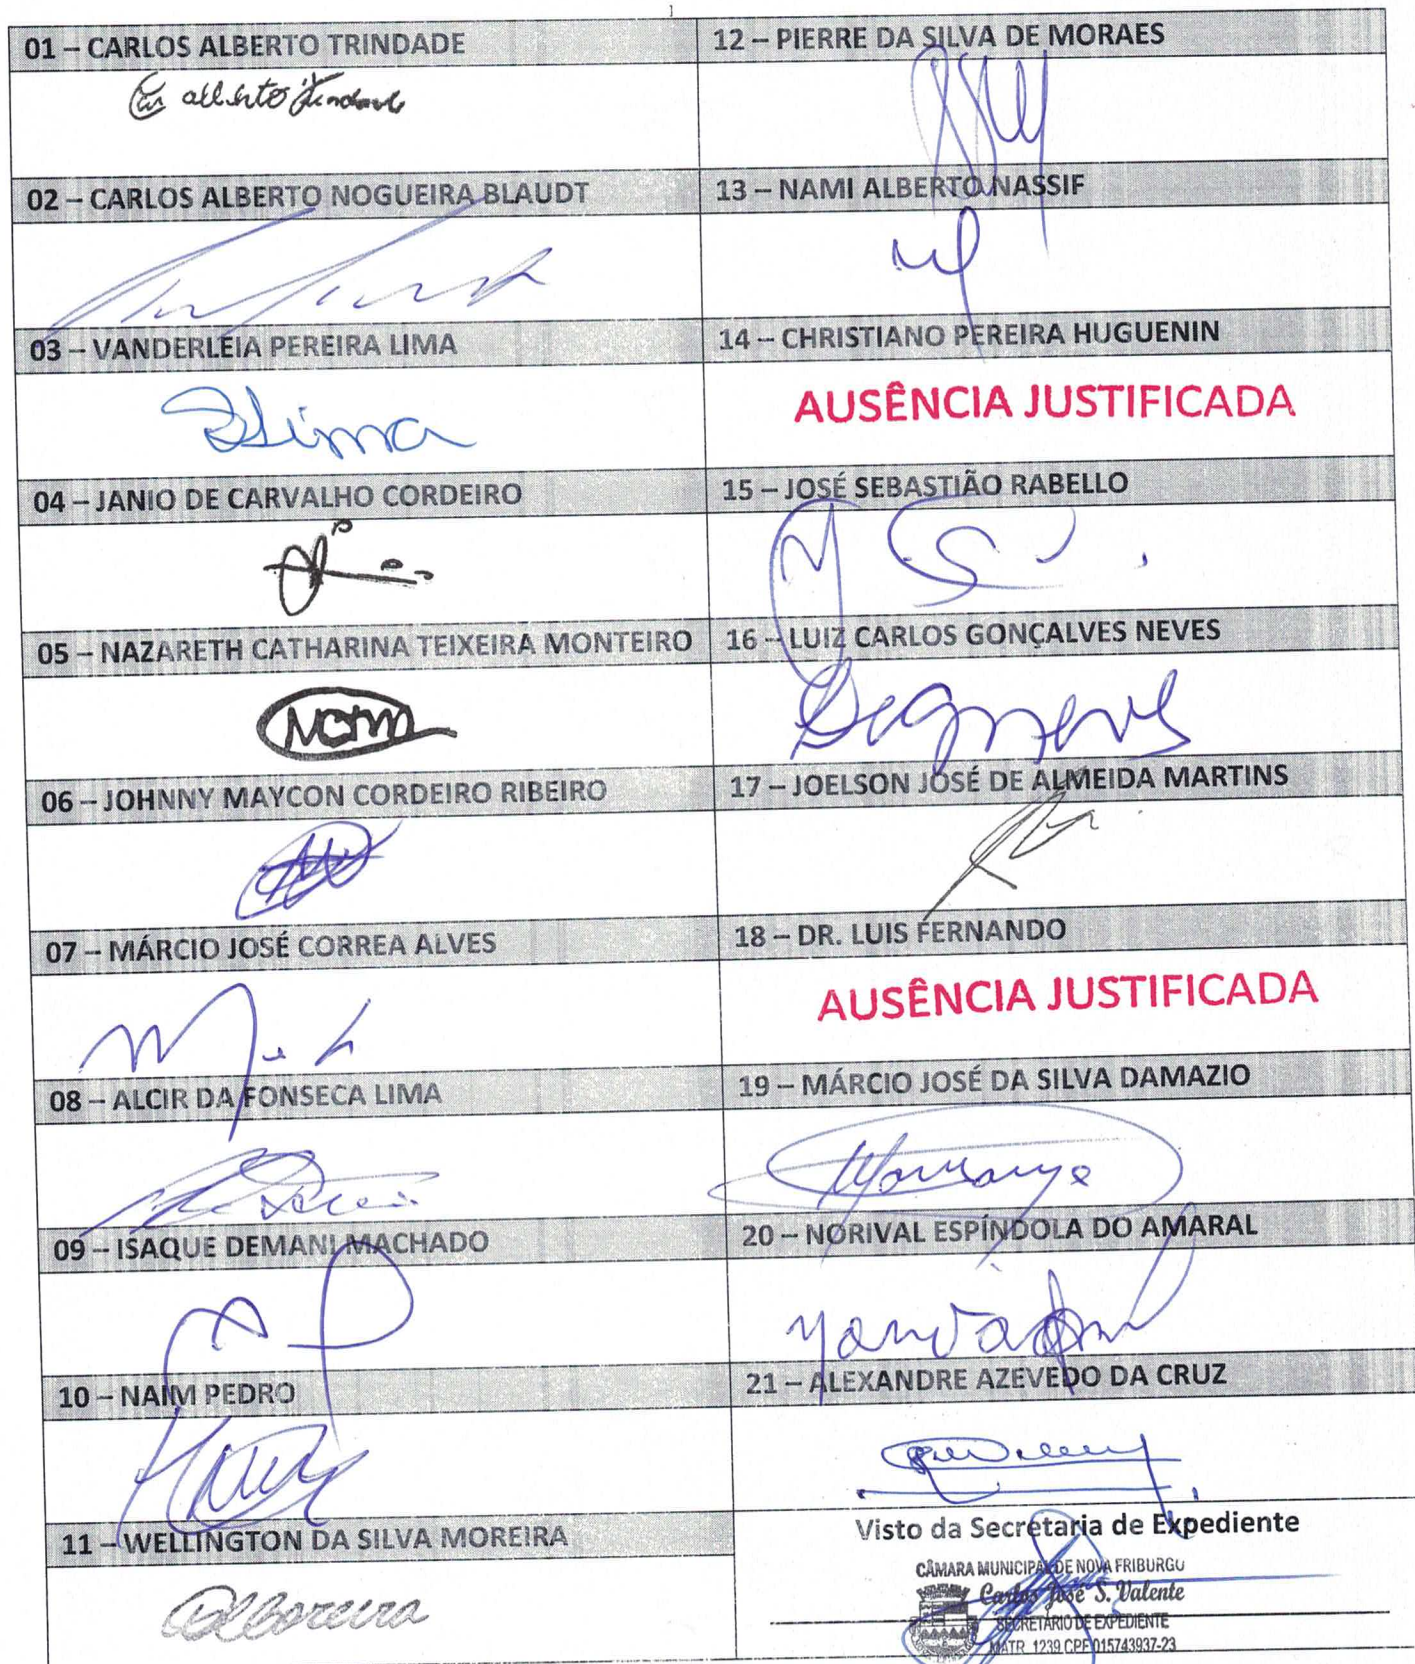 01 – CARLOS ALBERTO TRINDADE
alberto Trindade
02 – CARLOS ALBERTO NOGUEIRA BLAUDT
03 – VANDERLÉIA PEREIRA LIMA
Lima
04 – JANIO DE CARVALHO CORDEIRO
05 – NAZARETH CATHARINA TEIXEIRA MONTEIRO
NCTM
06 – JOHNNY MAYCON CORDEIRO RIBEIRO
07 – MÁRCIO JOSÉ CORREA ALVES
08 – ALCIR DA FONSECA LIMA
09 – ISAQUE DEMANI MACHADO
10 – NAIM PEDRO
11 – WELLINGTON DA SILVA MOREIRA
12 – PIERRE DA SILVA DE MORAES
13 – NAMI ALBERTO NASSIF
14 – CHRISTIANO PEREIRA HUGUENIN
AUSÊNCIA JUSTIFICADA
15 – JOSÉ SEBASTIÃO RABELLO
16 – LUIZ CARLOS GONÇALVES NEVES
17 – JOELSON JOSÉ DE ALMEIDA MARTINS
18 – DR. LUIS FERNANDO
AUSÊNCIA JUSTIFICADA
19 – MÁRCIO JOSÉ DA SILVA DAMAZIO
20 – NORIVAL ESPÍNDOLA DO AMARAL
21 – ALEXANDRE AZEVEDO DA CRUZ
Visto da Secretaria de Expediente
CÂMARA MUNICIPAL DE NOVA FRIBURGO
Carlos José S. Valente
SECRETÁRIO DE EXPEDIENTE
MATR. 1239 CPF 015743937-23